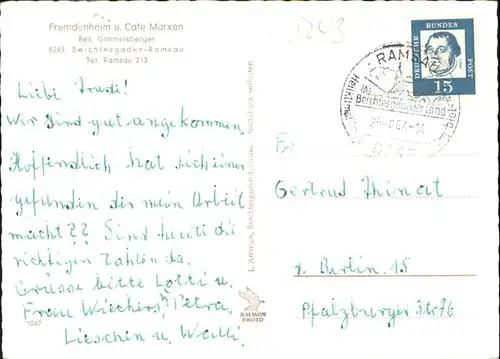 Fremdenheim u. Cafe Marxen
Bes. Gimmelsberger
8243 Berchtesgaden-Ramsau
Tel. Ramsau 213
Liebe Trudi!
Wir sind gut angekommen,
Hoffendlich hat sich einer
gefunden der mein Arbeit
macht?? Sind heute die
richtigen Zahlen da.
Grüsse bitte Lotti u.
Frau Wiechers, Petra,
Lieschen u.
1047
L. Ammon, Berchtesgaden-Schönau Nachdruck verboten
AMMON
PHOTO
DEUTSCHE BUNDES POST
15
RAMSAU
Berchtesgadener Land
Fr.
Gertrud
1 Berlin 15
Pfalzburger Str 76